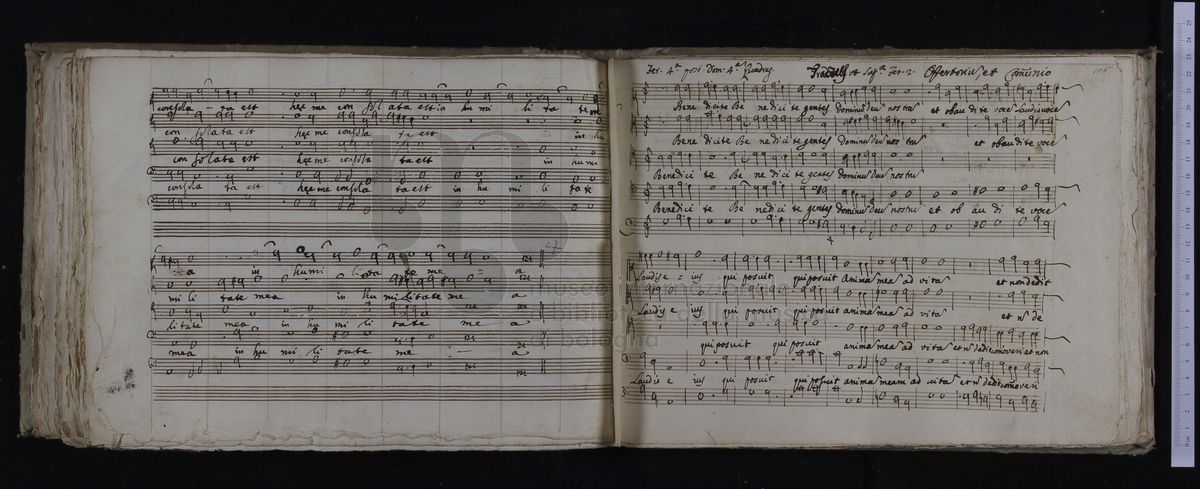 consola - ta est hęc me con sol ata est in hu mi li ta te
con solata est hęc me consola ta est in hu
con solata est hęc me consola ta est in humi
consola ta est hęc me consola ta est in hu mi li tate
27
me a in humi li ta te me - a
mi li tate mea in hu mi litate me a
litate mea in hu mi li tate me a
mea in hu mi li tate me - a
Fer. 4.ª post Dom. 4.ª Quadrag. ut sup.ª Fer. 2. Offertoriũ et Comunio
Bene dicite Be ne dici te gentes dominũ deũ nostrũ et obau dite voce laudis voce
Bene dicite Be ne dici te gentes dominũ deũ nostrũ et obaudite voce
Benedici te Be ne dici te gentes dominũ deũ nostrũ
Benedici te Be nedici te gentes dominũ deũ nostrũ et ob au di te voce
Laudis e - ius qui posuit qui posuit animã meã ad vitã et non dedit
Laudis e ius qui posuit qui posuit animã meã ad vitã et nõ de
qui posuit qui posuit animã meã ad vitã et nõ dedit comoveri et non
Laudis e ius qui posuit qui posuit animã meam ad vitã et nõ dedit comoveri
museo internazionale
biblioteca della musica
di bologna